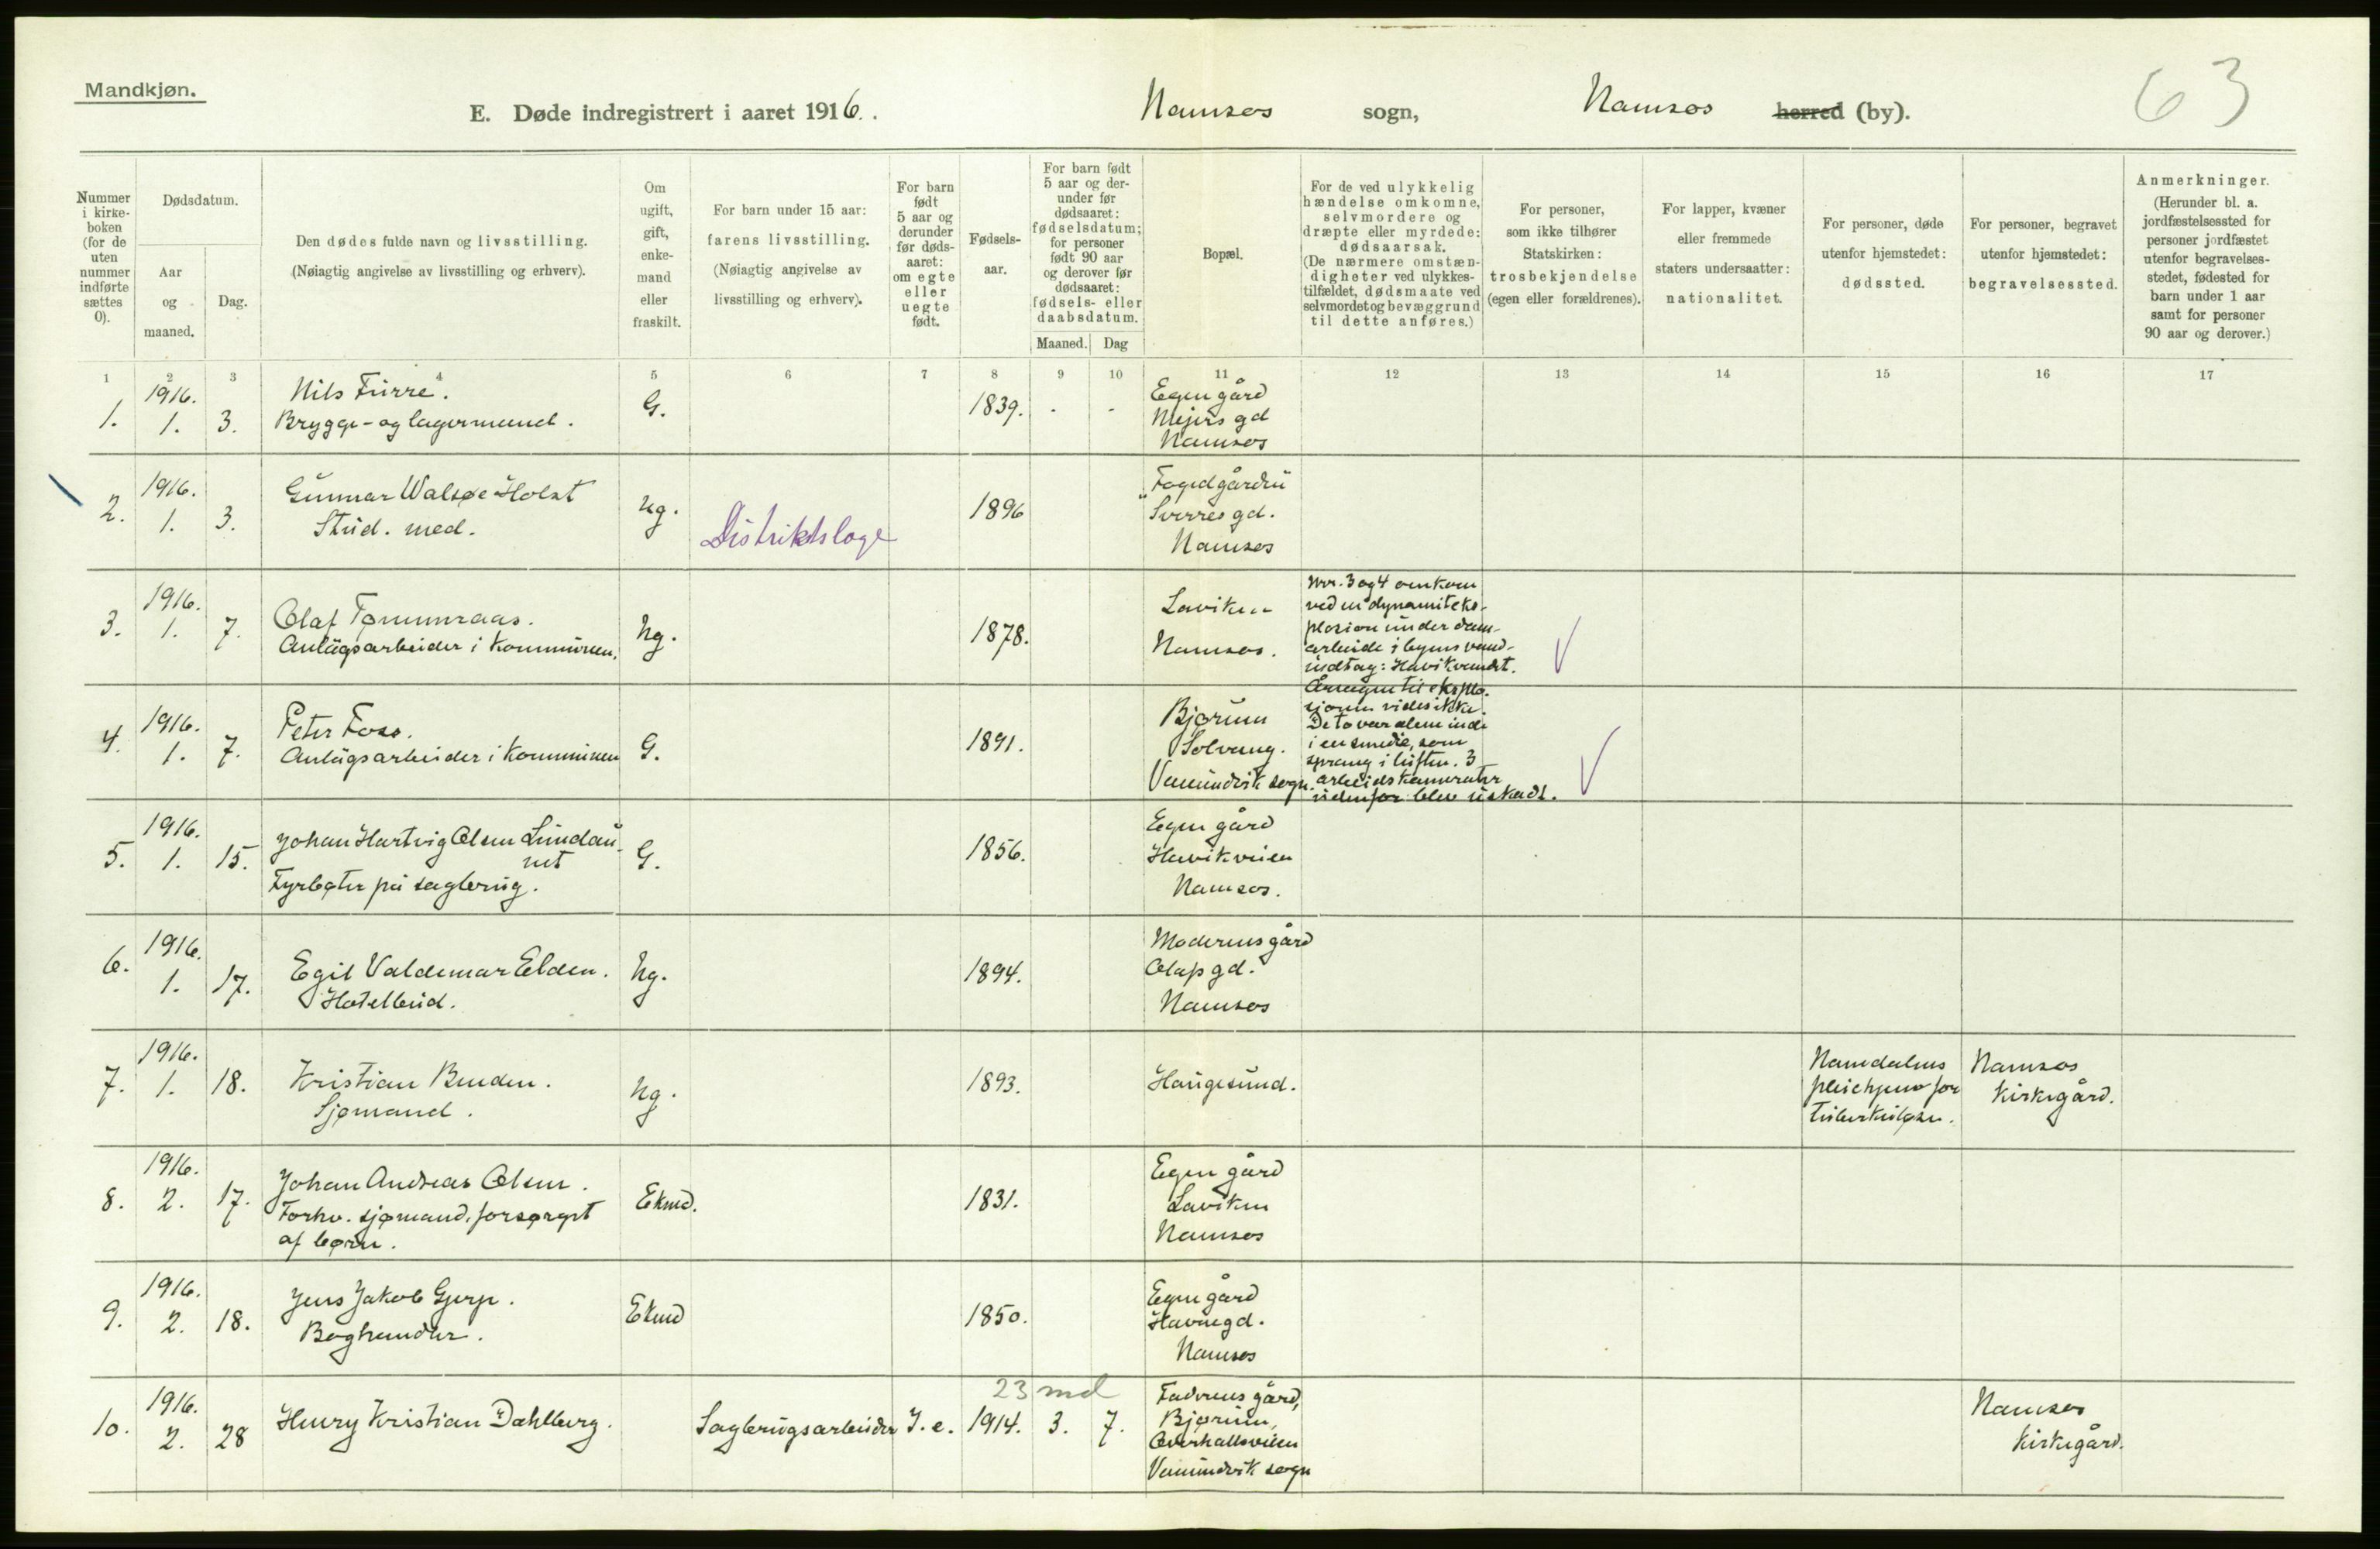 Mandkjøn.
E. Døde indregistrert i aaret 1916.
Namsos sogn,
Namsos herred (by).
63
Nummer i kirkeboken (for de uten nummer indførte sættes 0).
Dødsdatum.
Aar og maaned.
Dag.
Den dødes fulde navn og livsstilling.
(Nøiagtig angivelse av livsstilling og erhverv).
Om ugift, gift, enkemand eller fraskilt.
For barn under 15 aar:
farens livsstilling.
(Nøiagtig angivelse av livsstilling og erhverv).
For barn født 5 aar og derunder før dødsaaret: om egte eller uegte født.
Fødselsaar.
For barn født 5 aar og derunder før dødsaaret: fødselsdatum; for personer født 90 aar og derover før dødsaaret: fødsels- eller daabsdatum.
Maaned.
Dag
Bopæl.
For de ved ulykkelig hændelse omkomne, selvmordere og dræpte eller myrdede: dødsaarsak.
(De nærmere omstændigheter ved ulykkestilfældet, dødsmaate ved selvmordet og bevæggrund til dette anføres.)
For personer, som ikke tilhører Statskirken: trosbekjendelse (egen eller forældrenes).
For lapper, kvæner eller fremmede staters undersaatter: nationalitet.
For personer, døde utenfor hjemstedet: dødssted.
For personer, begravet utenfor hjemstedet: begravelsessted.
Anmerkninger.
(Herunder bl. a. jordfæstelsessted for personer jordfæstet utenfor begravelsesstedet, fødested for barn under 1 aar samt for personer 90 aar og derover.)
1 2 3 4 5 6 7 8 9 10 11 12 13 14 15 16 17
1. 1916. 1. 3. Nils Fürre. G. 1839. - - Egen gård
Brygge- og lagermand. Mejers gd
Namsos
2. 1916. 1. 3. Gunnar Walsøe Holst Ug. Distriktslæge 1896 Fogedgården
Stud. med. Sverres gd.
Namsos
3. 1916. 1. 7. Olaf Tømmeraas. Ug. 1878. Laviken
Anlägsarbeider i kommunen. Namsos.
Nr. 3 og 4 omkom
ved en dynamiteks-
plosion under dam-
arbeide i byens vand-
indtag: Havikvandet.
Årsagen til eksplo-
sjonen vides ikke.
De to var alene inde
i en smedie, som
sprang i luften. 3
arbeidskamerater
udenfor blev uskadt.
4. 1916. 1. 7. Peter Foss. G. 1891. Bjørum
Anlägsarbeider i kommunen Solvang.
Vemundvik sogn.
5. 1916. 1. 15. Johan Hartvig Olsen Lindau- G. 1856. Egen gård
net Havikveien
Fyrbøter på sagbrug. Namsos.
6. 1916. 1. 17. Egil Valdemar Elden. Ug. 1894. Moderens gård
Hotelbud. Olafs gd.
Namsos
7. 1916. 1. 18. Kristian Benden. Ug. 1893. Haugesund.
Sjømand.
Namdalens
pleiehjem for
tuberkuløse.
Namsos
kirkegård.
8. 1916. 2. 17. Johan Andreas Olsen. Ekmd. 1831. Egen gård
Forhv. sjømand, forsørget Laviken
af børn. Namsos
9. 1916. 2. 18. Jens Jakob Gjerp. Ekmd 1850. Egen gård
Boghandler. Havnegd.
Namsos
10. 1916. 2. 28 Henry Kristian Dahlberg. Sagbrugsarbeider I. e. 1914. 3. 7.
23 md
Faderens gård,
Bjørum,
Overhallsveien
Vemundvik sogn
Namsos
kirkegård.